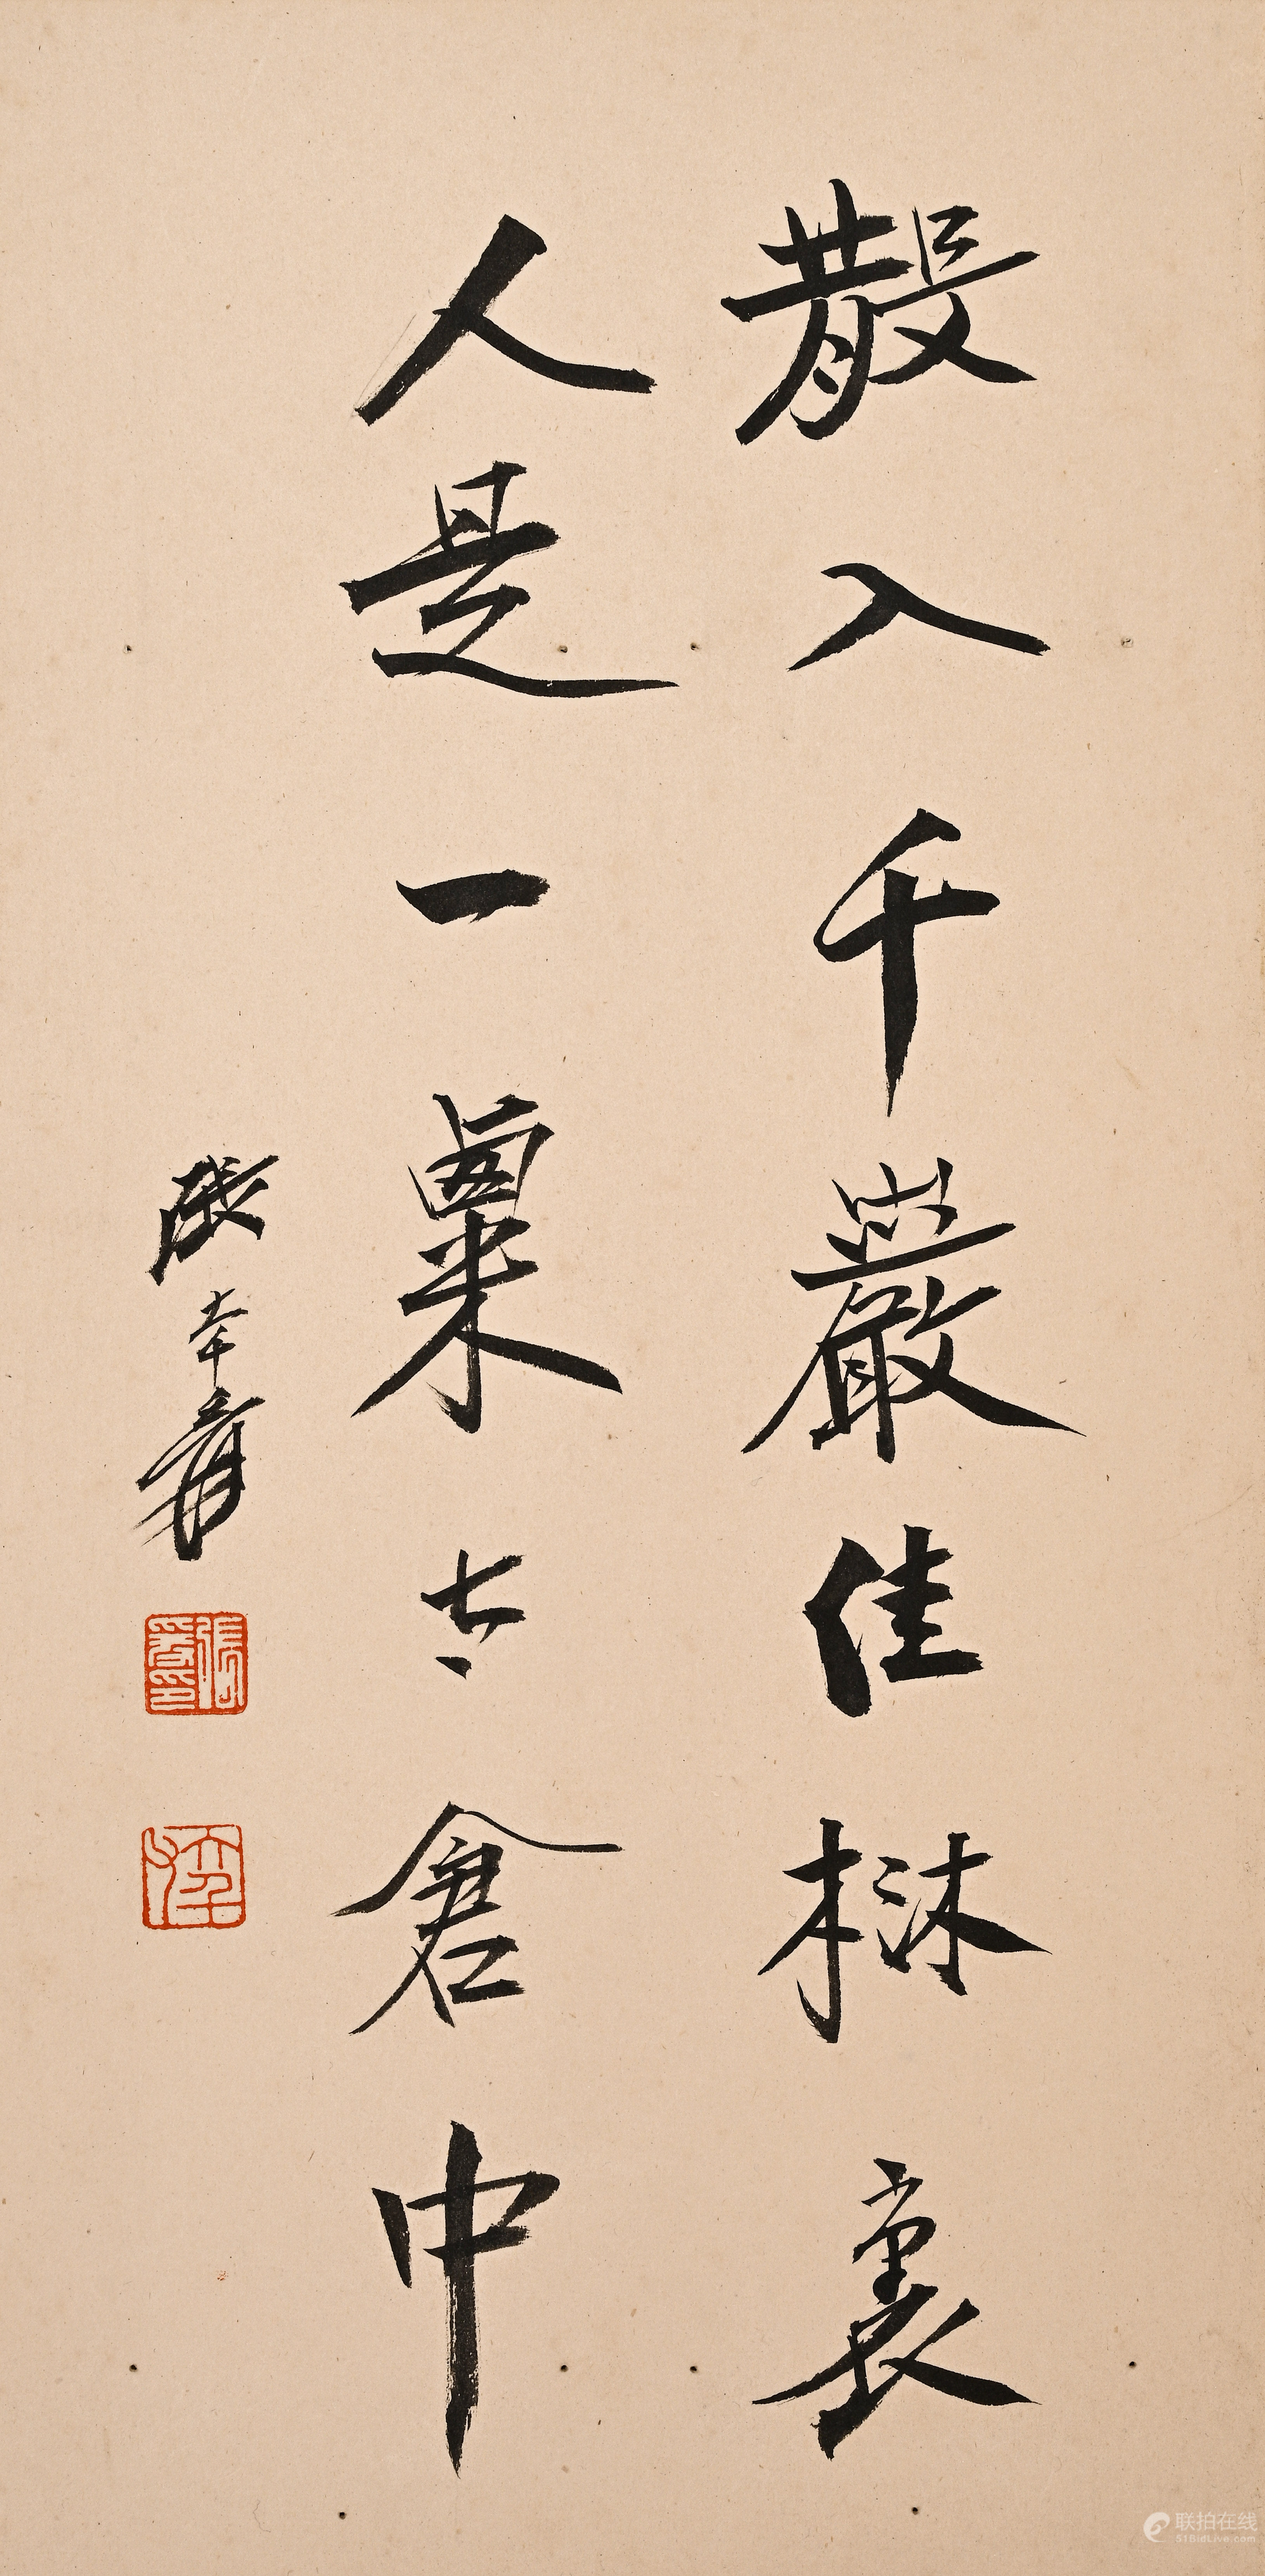 散入千巖佳樹裏
人是一粟太倉中
張大千爰
張爰
联拍在线
51BidLive.com